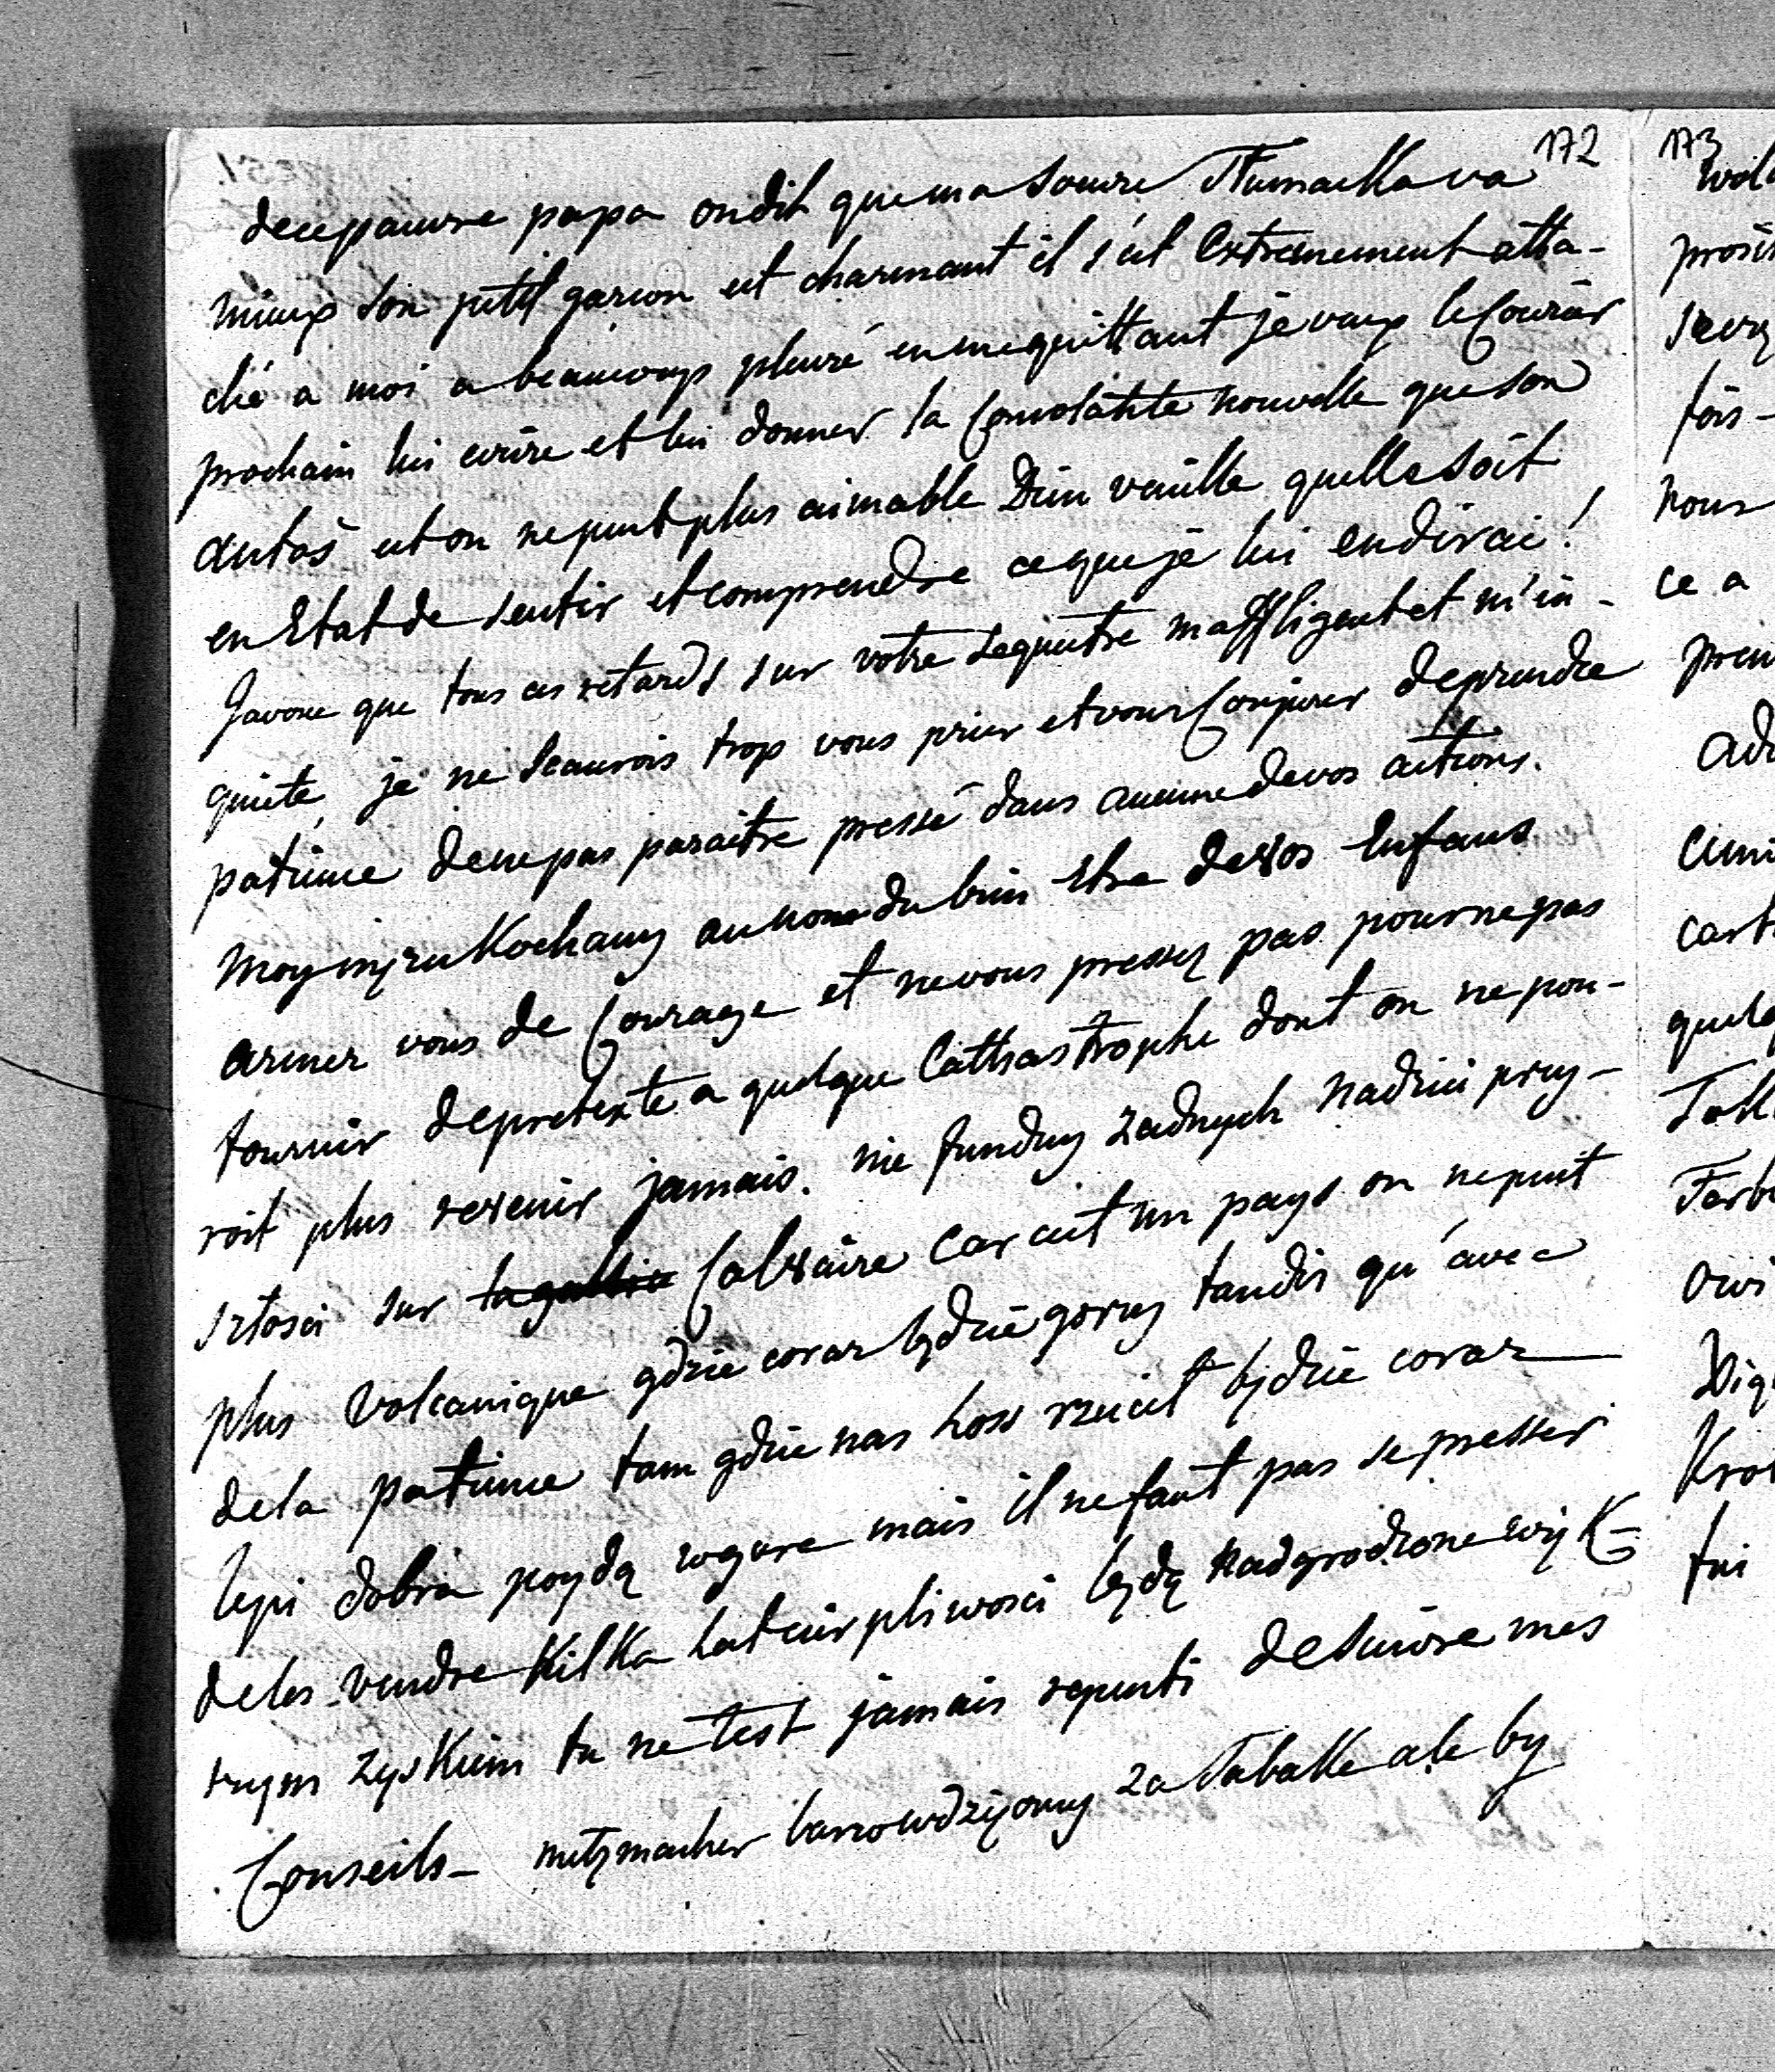 172
de ce pauvre papa on dit que ma soeure Tłumacka va
mieux son petit garcon est charmant il s'est Extremement atta-
ché a moi a beaucoup pleuré en me quittant je veux le Courier
prochain lui ecrire et lui donner la Consolante nouvelle que son
Antoś est on ne peut plus aimable Dieu veuille quelle soit
en Etat de sentir et comprendre ce que je lui en dirai!
Javoue que tous ces retards sur votre sequestre maffligent et m'in-
quiete, je ne scaurois trop vous prier et vous Conjurer de prendre
patience de ne pas paraitre pressé dans aucune de vos actions.
Moy mężu Kochany au nom du bien Etre de vos Enfans
armez vous de Courage et ne vous pressez pas pour ne pas
fournir de pretexte a quelque Cathastrophe dont on ne pou-
roit plus revenir jamais. nie funduy zadnych nadziei przy-
szłosci sur Calvaire car cest un pays on ne peut
plus Volcanique gdzie coraz będzie gorzey tandis qu'avec
de la patience tam gdzie nas Loss rzucił będzie coraz
lepi dobra poydą w gore mais il ne faut pas se presser
de les vendre Kilka Lat cierpliwosci będą nadgrodzone więk-
szym zyskiem tu ne test jamais repenti de suivre mes
Conseils - metzmacher za Tabakke ale by
173